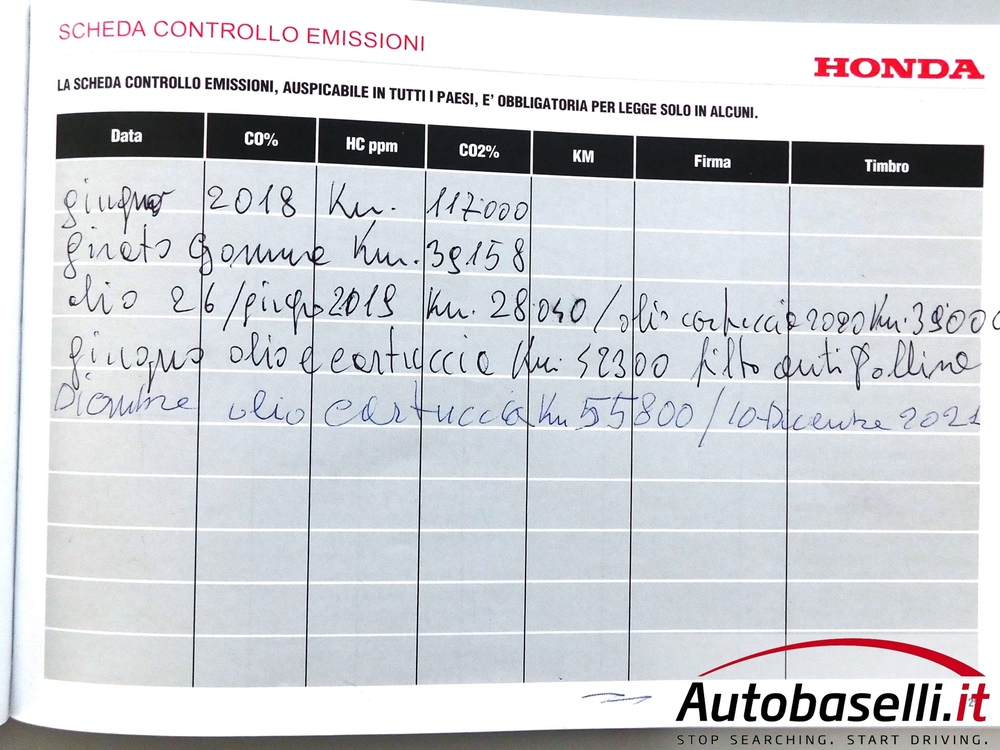 SCHEDA CONTROLLO EMISSIONI
HONDA
LA SCHEDA CONTROLLO EMISSIONI, AUSPICABILE IN TUTTI I PAESI, E' OBBLIGATORIA PER LEGGE SOLO IN ALCUNI.
Data CO% HC ppm CO2% KM Firma Timbro
giugno 2018 Km. 117.000
girato Gomme Km. 39158
olio 26/giugno 2019 Km. 28.040 / olio cartuccia 2020 Km. 39000
giugno olio e cartuccia Km. 42300 filtro anti Polline
Dicembre olio cartuccia Km 55800 / 10 Dicembre 2021
Autobaselli.it
STOP SEARCHING. START DRIVING.